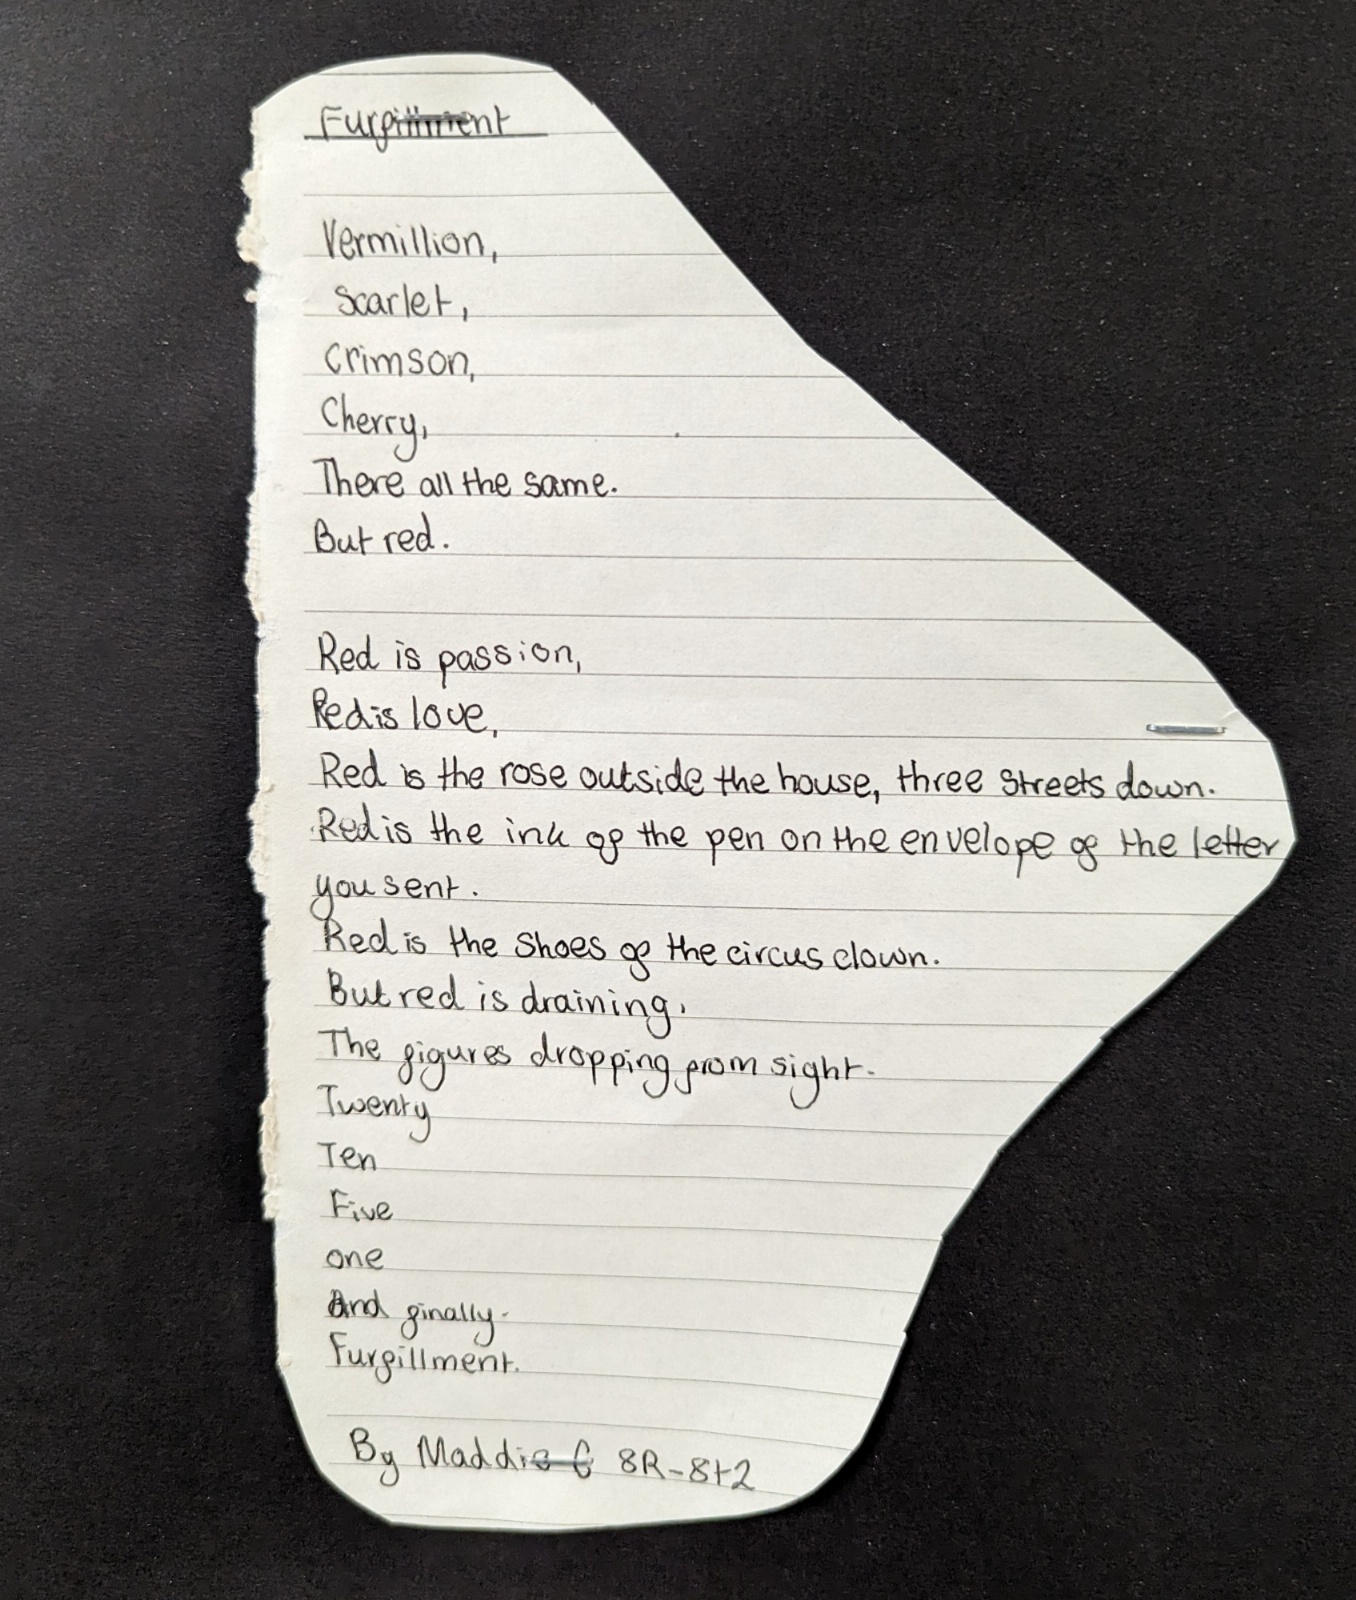 Furfillment
Vermillion,
Scarlet,
Crimson,
Cherry,
There all the same.
But red.
Red is passion,
Red is love,
Red is the rose outside the house, three streets down.
Red is the ink of the pen on the envelope of the letter
you sent.
Red is the shoes of the circus clown.
But red is draining.
The figures dropping from sight.
Twenty
Ten
Five
one
And finally.
Furfillment.
By Maddie C 8R-8t2